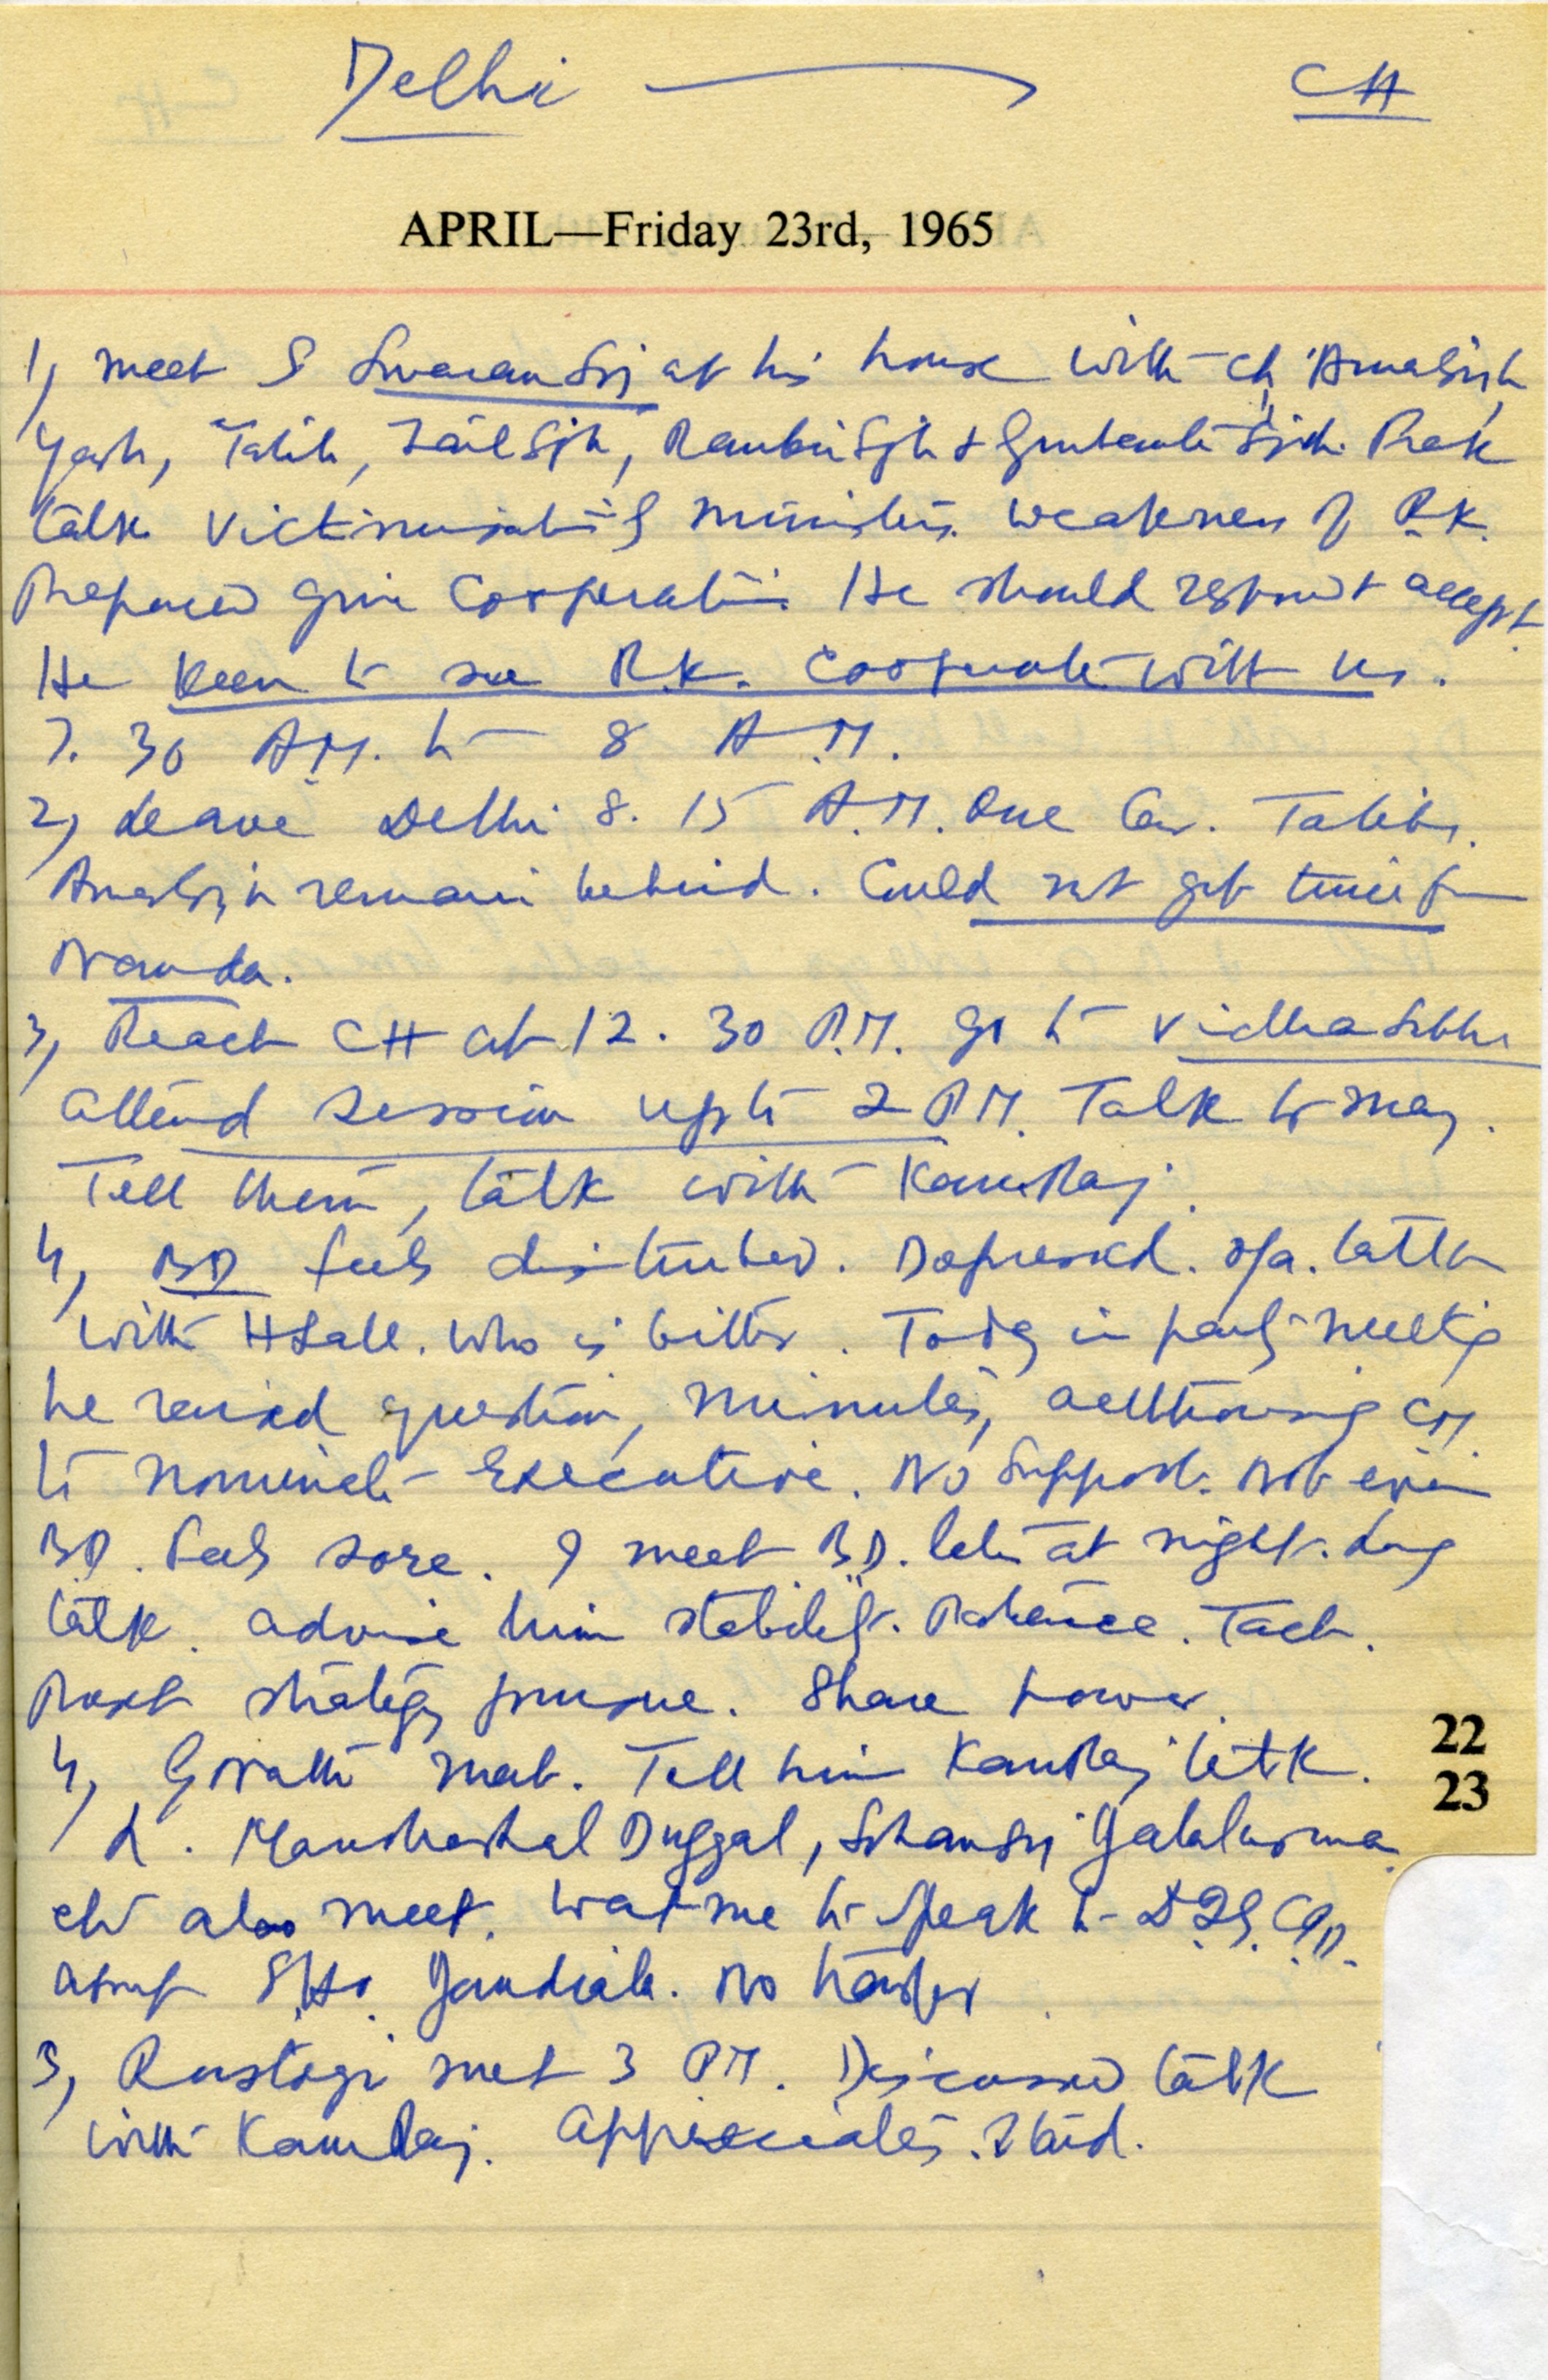 Delhi CH
APRIL—Friday 23rd, 1965
1, meet S Swaran Sij at his house with Ch Amar Sigh,
Yash, Talib, Zail Sigh, Ranbir Sigh + Gurbanta Sigh.
talk victimisation of ministers. weakness of R.K.
Prepared give Cooperation. He should respond + accept.
He keen to see R.K. Cooperate with us.
7. 30 A.M. to 8 A.M.
2, Leave Delhi 8. 15 A.M. One Car. Talib.
remain behind. Could not get time from
Nanda.
3, Reach CH at 12. 30 P.M. go to Vidhan Sabha
attend session upto 2 P.M. Talk to many.
Tell them, talk with KamRaj.
4, BD feels disturbed. Depressed. talk
with HLall. who is bitter. Today in party meeting
he raised question, minutes, authorising CM
to nominate Executive. No Support. Not even
BD. feels sore. I meet BD. late at night. Long
talk. advise him stability. Patience. Tact.
strategy pursue. Share power.
4, met. Tell him KamRaj talk.
L. Manohar Lal Duggal, Sohan Sij Jalalusma
etc also meet. want me to speak to D.I.G. CID.
about S.H.O. Jandiala. No transfer.
5, Rustogi met 3 P.M. Discussed talk
with KamRaj. Appreciates.
22
23